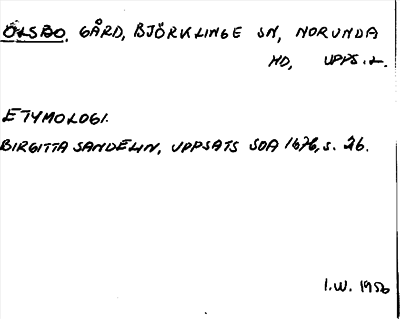 ÖLSBO. GÅRD, BJÖRKLINGE SN, NORUNDA
HD, UPPS. L.
ETYMOLOGI.
BIRGITTA SANDELIN, UPPSATS SOA 1676, s. 26.
I.W. 1950